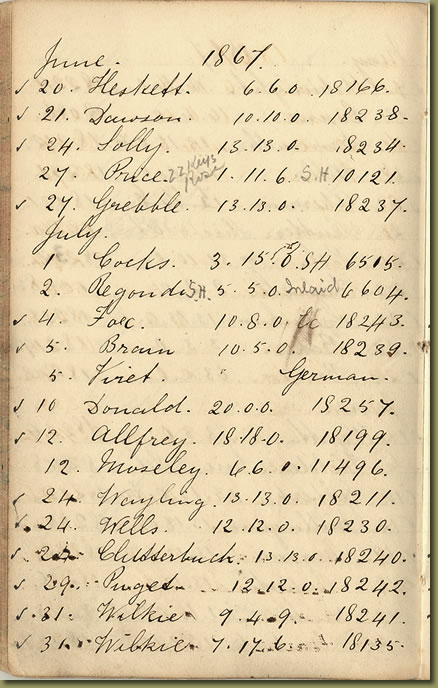 June. 1867.
✓ 20. Heskett. 6.6.0. 18166.
✓ 21. Dawson. 10.10.0. 18238.
✓ 24. Solly. 13.13.0. 18234.
27. Price. 22 Keys Rose 1.11.6. S.H 10121.
✓ 27. Grebble. 13.13.0. 18237.
July.
1 Cocks. 3.15.0. SH 6515.
2. Regondi S.H. 5.5.0. Inlaid 6604.
✓ 4. 10.8.0. 18243.
✓ 5. Brain 10.5.0. 18239.
5. Viret. " German.
✓ 10 Donald. 20.0.0. 18257.
✓ 12. Allfrey. 18.18.0. 18199.
12. Moseley. 6.6.0. 11496.
✓ 24. Wayling. 13.13.0. 18211.
✓ 24. Wells. 12.12.0. 18230.
✓ Clutterbuck. 13.13.0. 18240.
✓ 29. Puget. 12.12.0. 18242.
✓ 31. Wilkie 9.4.9. 18241.
✓ 31. Wilkie. 7.17.6. 18135.